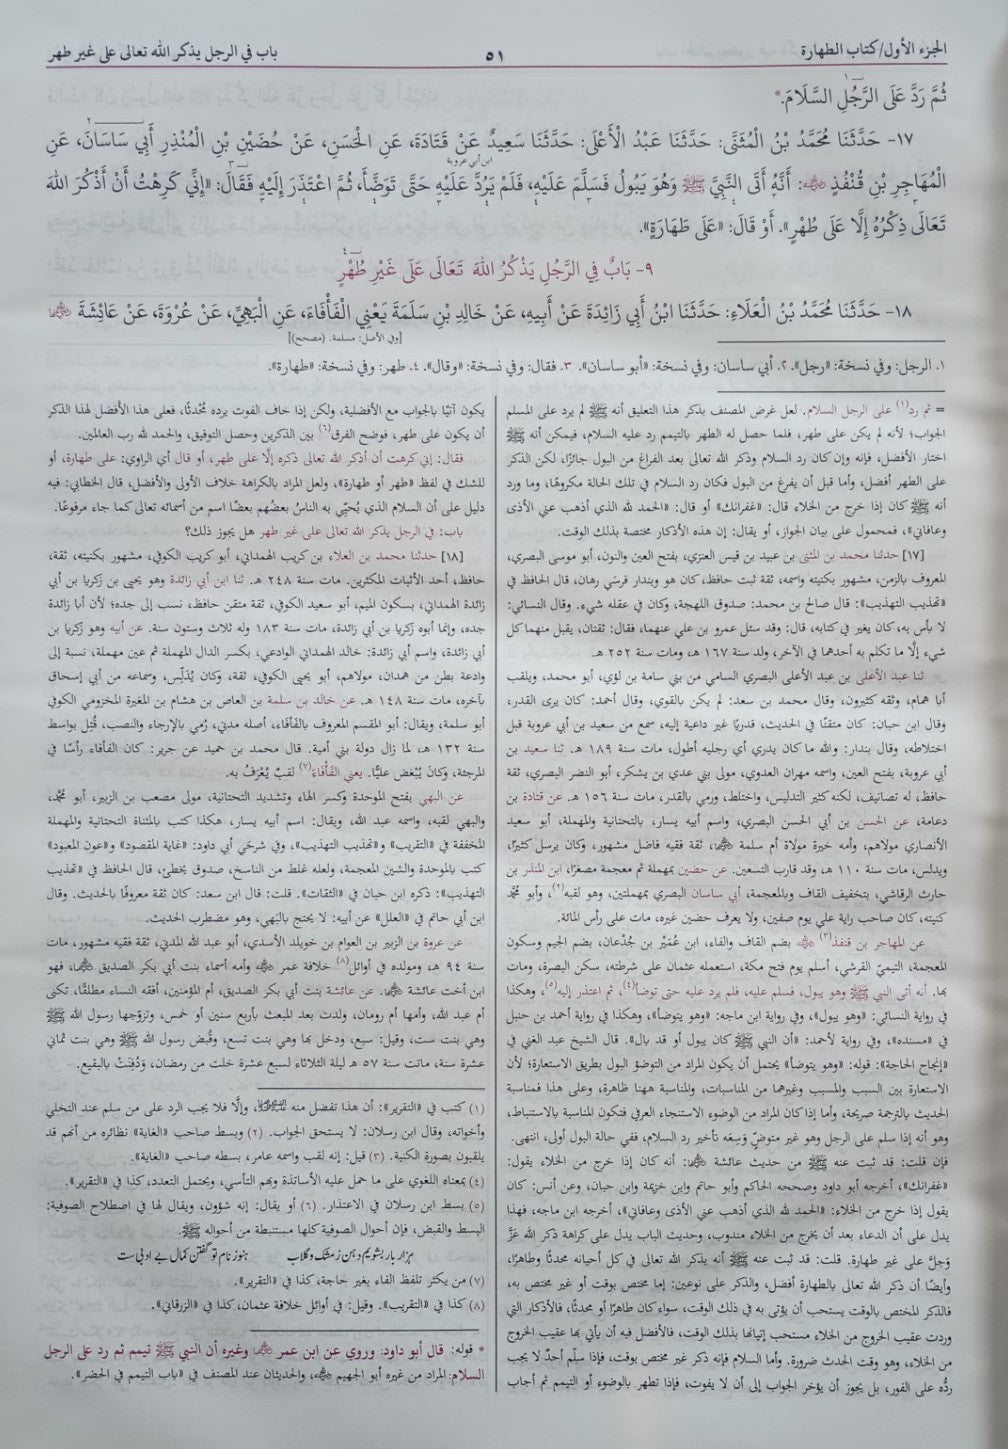 الجزء الأول/كتاب الطهارة
٥١
باب في الرجل يذكر الله تعالى على غير طهر
ثُمَّ رَدَّ عَلَى الرَّجُلِ١ السَّلَامَ.*
١٧- حَدَّثَنَا مُحَمَّدُ بْنُ الْمُثَنَّى: حَدَّثَنَا عَبْدُ الْأَعْلَى: حَدَّثَنَا سَعِيدٌ عَنْ قَتَادَةَ، عَنِ الْحَسَنِ، عَنْ حُضَيْنِ بْنِ الْمُنْذِرِ أَبِي سَاسَانَ٢، عَنِ
ابن أبي عروبة
الْمُهَاجِرِ بْنِ قُنْفُذٍ ﷺ: أَنَّهُ أَتَى النَّبِيَّ ﷺ وَهُوَ يَبُولُ فَسَلَّمَ عَلَيْهِ، فَلَمْ يَرُدَّ عَلَيْهِ حَتَّى تَوَضَّأَ، ثُمَّ اعْتَذَرَ إِلَيْهِ فَقَالَ٣: «إِنِّي كَرِهْتُ أَنْ أَذْكُرَ اللهَ
تَعَالَى ذِكْرُهُ إِلَّا عَلَى طُهْرٍ». أَوْ قَالَ: «عَلَى طَهَارَةٍ».
٩- بَابٌ فِي الرَّجُلِ يَذْكُرُ اللهَ تَعَالَى عَلَى غَيْرِ طُهْرٍ٤
١٨- حَدَّثَنَا مُحَمَّدُ بْنُ الْعَلَاءِ: حَدَّثَنَا ابْنُ أَبِي زَائِدَةَ عَنْ أَبِيهِ، عَنْ خَالِدِ بْنِ سَلَمَةَ يَعْنِي الْفَأْفَاءَ، عَنِ الْبَهِيِّ، عَنْ عُرْوَةَ، عَنْ عَائِشَةَ
[وفي الأصل: مسلمة. (مصحح)]
١. الرجل: وفي نسخة: «رجل». ٢. أبي ساسان: وفي نسخة: «أبو ساسان». ٣. فقال: وفي نسخة: «وقال». ٤. طهر: وفي نسخة: «طهارة».
= ثم رد(١) على الرجل السلام. لعل غرض المصنف بذكر هذا التعليق أنه ﷺ لم يرد على المسلم
الجواب؛ لأنه لم يكن على طهر، فلما حصل له الطهر بالتيمم رد عليه السلام، فيمكن أنه ﷺ
اختار الأفضل، فإنه وإن كان رد السلام وذكر الله تعالى بعد الفراغ من البول جائزًا، لكن الذكر
على الطهر أفضل، وأما قبل أن يفرغ من البول فكان رد السلام في تلك الحالة مكروهًا، وما ورد
أنه ﷺ كان إذا خرج من الخلاء قال: «غفرانك» أو قال: «الحمد لله الذي أذهب عني الأذى
وعافاني»، فمحمول على بيان الجواز، أو يقال: إن هذه الأذكار مختصة بذلك الوقت.
[١٧] حدثنا محمد بن المثنى بن عبيد بن قيس العنزي، بفتح العين والنون، أبو موسى البصري،
المعروف بالزمن، مشهور بكنيته واسمه، ثقة ثبت حافظ، كان هو وبندار فرسَي رهان، قال الحافظ في
«تهذيب التهذيب»: قال صالح بن محمد: صدوق اللهجة، وكان في عقله شيء. وقال النسائي:
لا بأس به، كان يغير في كتابه، قال: وقد سئل عمرو بن علي عنهما، فقال: ثقتان، يقبل منهما كل
شيء إلّا ما تكلم به أحدهما في الآخر، ولد سنة ١٦٧ هـ، ومات سنة ٢٥٢ هـ.
ثنا عبد الأعلى بن عبد الأعلى البصري السامي من بني سامة بن لؤي، أبو محمد، ويلقب
أبا همام، وثقه كثيرون، وقال محمد بن سعد: لم يكن بالقوي، وقال أحمد: كان يرى القدر،
وقال ابن حبان: كان متقنًا في الحديث، قدريًا غير داعية إليه، سمع من سعيد بن أبي عروبة قبل
اختلاطه، وقال بندار: والله ما كان يدري أي رجليه أطول، مات سنة ١٨٩ هـ. ثنا سعيد بن
أبي عروبة، بفتح العين، واسمه مهران العدوي، مولى بني عدي بن يشكر، أبو النضر البصري، ثقة
حافظ، له تصانيف، لكنه كثير التدليس، واختلط، ورمي بالقدر، مات سنة ١٥٦ هـ. عن قتادة بن
دعامة، عن الحسن بن أبي الحسن البصري، واسم أبيه يسار، بالتحتانية والمهملة، أبو سعيد
الأنصاري مولاهم، وأمه خيرة مولاة أم سلمة، ثقة فقيه فاضل مشهور، وكان يرسل كثيرًا،
ويدلس، مات سنة ١١٠ هـ، وقد قارب التسعين. عن حضين بمهملة ثم معجمة مصغرًا، ابن المنذر بن
حارث الرقاشي، بتخفيف القاف وبالمعجمة، أبي ساسان البصري بمهملتين، وهو لقبه(٢)، وأبو محمد
كنيته، كان صاحب راية علي يوم صفين، ولا يعرف حضين غيره، مات على رأس المائة.
عن المهاجر بن قنفذ(٣) بضم القاف والفاء، ابن عُمَيْر بن جُدْعان، بضم الجيم وسكون
المعجمة، التيميّ القرشي، أسلم يوم فتح مكة، استعمله عثمان على شرطته، سكن البصرة، ومات
بها. أنه أتى النبي ﷺ وهو يبول، فسلم عليه، فلم يرد عليه حتى توضأ(٤)، ثم اعتذر إليه(٥)، وهكذا
في رواية النسائي: «وهو يبول»، وفي رواية ابن ماجه: «وهو يتوضأ»، وهكذا في رواية أحمد بن حنبل
في «مسنده»، وفي رواية لأحمد: «أن النبي ﷺ كان يبول أو قد بال». قال الشيخ عبد الغني في
«إنجاح الحاجة»: قوله: «وهو يتوضأ» يحتمل أن يكون المراد من التوضؤ البول بطريق الاستعارة؛ لأن
الاستعارة بين السبب والمسبب وغيرهما من المناسبات، والمناسبة ههنا ظاهرة، وعلى هذا فمناسبة
الحديث بالترجمة صريحة، وأما إذا كان المراد من الوضوء الاستنجاء العرفي فتكون المناسبة بالاستنباط،
وهو أنه إذا سلم على الرجل وهو غير متوضٍّ وَسِعَه تأخير رد السلام، ففي حالة البول أولى، انتهى.
فإن قلت: قد ثبت عنه ﷺ من حديث عائشة: أنه كان إذا خرج من الخلاء يقول:
«غفرانك»، أخرجه أبو داود وصححه الحاكم وأبو حاتم وابن خزيمة وابن حبان، وعن أنس: كان
يقول إذا خرج من الخلاء: «الحمد لله الذي أذهب عني الأذى وعافاني»، أخرجه ابن ماجه، فهذا
يدل على أن الدعاء بعد أن يخرج من الخلاء مندوب، وحديث الباب يدل على كراهة ذكر الله عَزَّ
وَجلَّ على غير طهارة. قلت: قد ثبت عنه ﷺ أنه يذكر الله تعالى في كل أحيانه محدثًا وطاهرًا،
وأيضًا أن ذكر الله تعالى بالطهارة أفضل، والذكر على نوعين: إما مختص بوقت أو غير مختص به،
فالذكر المختص بالوقت يستحب أن يؤتى به في ذلك الوقت، سواء كان طاهرًا أو محدثًا، فالأذكار التي
وردت عقيب الخروج من الخلاء مستحب إتيانها بذلك الوقت، فالأفضل فيه أن يأتي بها عقيب الخروج
من الخلاء، وهو وقت الحدث ضرورة. وأما السلام فإنه ذكر غير مختص بوقت، فإذا سلّم أحدٌ لا يجب
ردُّه على الفور، بل يجوز أن يؤخر الجواب إلى أن لا يفوت، فإذا تطهر بالوضوء أو التيمم ثم أجاب
يكون آتيًا بالجواب مع الأفضلية، ولكن إذا خاف الفوت يرده مُحْدثًا، فعلى هذا الأفضل لهذا الذكر
أن يكون على طهر، فوضح الفرق(٦) بين الذكرين وحصل التوفيق، والحمد لله رب العالمين.
فقال: إني كرهت أن أذكر الله تعالى ذكره إلّا على طهر، أو قال أي الراوي: على طهارة، أو
للشك في لفظ «طهر أو طهارة»، ولعل المراد بالكراهة خلاف الأولى والأفضل، قال الخطابي: فيه
دليل على أن السلام الذي يُحيِّي به الناسُ بعضُهم بعضًا اسم من أسمائه تعالى كما جاء مرفوعًا.
باب: في الرجل يذكر الله تعالى على غير طهر هل يجوز ذلك؟
[١٨] حدثنا محمد بن العلاء بن كريب الهمداني، أبو كريب الكوفي، مشهور بكنيته، ثقة،
حافظ، أحد الأثبات المكثرين. مات سنة ٢٤٨ هـ. ثنا ابن أبي زائدة وهو يحيى بن زكريا بن أبي
زائدة الهمداني، بسكون الميم، أبو سعيد الكوفي، ثقة متقن حافظ، نسب إلى جده؛ لأن أبا زائدة
جده، وإنما أبوه زكريا بن أبي زائدة، مات سنة ١٨٣ وله ثلاث وستون سنة. عن أبيه وهو زكريا بن
أبي زائدة، واسم أبي زائدة: خالد الهمداني الوادعي، بكسر الدال المهملة ثم عين مهملة، نسبة إلى
وادعة بطن من همدان، مولاهم، أبو يحيى الكوفي، ثقة، وكان يُدَلِّس، وسماعه من أبي إسحاق
بآخره، مات سنة ١٤٨ هـ. عن خالد بن سلمة بن العاص بن هشام بن المغيرة المخزومي الكوفي
أبو سلمة، ويقال: أبو المقسم المعروف بالفأفاء، أصله مدني، رُمي بالإرجاء والنصب، قُتِل بواسط
سنة ١٣٢ هـ، لما زال دولة بني أمية. قال محمد بن حميد عن جرير: كان الفأفاء رأسًا في
المرجئة، وكانَ يُبْغض عليًّا. يعني الفَأْفَاءَ(٧) لقبٌ يُعْرَفُ به.
عن البهي بفتح الموحدة وكسر الهاء وتشديد التحتانية، مولى مصعب بن الزبير، أبو محمد،
والبهي لقبه، واسمه عبد الله، ويقال: اسم أبيه يسار، هكذا كتب بالمثناة التحتانية والمهملة
المخففة في «التقريب» و«تهذيب التهذيب»، وفي شرحَي أبي داود: «غاية المقصود» و«عون المعبود»
كتب بالموحدة والشين المعجمة، ولعله غلط من الناسخ، صدوق يخطئ، قال الحافظ في «تهذيب
التهذيب»: ذكره ابن حبان في «الثقات». قلت: قال ابن سعد: كان ثقة معروفًا بالحديث. وقال
ابن أبي حاتم في «العلل» عن أبيه: لا يحتج بالبَهي، وهو مضطرب الحديث.
عن عروة بن الزبير بن العوام بن خويلد الأسدي، أبو عبد الله المدني، ثقة فقيه مشهور، مات
سنة ٩٤ هـ، ومولده في أوائل(٨) خلافة عمر وأمه أسماء بنت أبي بكر الصديق، فهو
ابن أخت عائشة. عن عائشة بنت أبي بكر الصديق، أم المؤمنين، أفقه النساء مطلقًا، تكنى
أم عبد الله، وأمها أم رومان، ولدت بعد المبعث بأربع سنين أو خمس، وتزوّجها رسول الله ﷺ
وهي بنت ست، وقيل: سبع، ودخل بها وهي بنت تسع، وقُبض رسول الله ﷺ وهي بنت ثماني
عشرة سنة، ماتت سنة ٥٧ هـ ليلة الثلاثاء لسبع عشرة خلت من رمضان، وَدُفنَتْ بالبقيع.
(١) كتب في «التقرير»: أن هذا تفضل منه، وإلَّا فلا يجب الرد على من سلم عند التخلي
وأخواته، وقال ابن رسلان: لا يستحق الجواب. (٢) وبسط صاحب «الغاية» نظائره من أنهم قد
يلقبون بصورة الكنية. (٣) قيل: إنه لقب واسمه عامر، بسطه صاحب «الغاية».
(٤) بمعناه اللغوي على ما حمل عليه الأساتذة وبهم التأسي، ويحتمل التعدد، كذا في «التقرير».
(٥) بسط ابن رسلان في الاعتذار. (٦) أو يقال: إنه شؤون، ويقال لها في اصطلاح الصوفية:
البسط والقبض، فإن أحوال الصوفية كلها مستنبطة من أحواله ﷺ.
ہزار بار بشویم دہن ز مشک و گلاب ہنوز نام تو گفتن کمال بے ادبی ست
(٧) من يكثر تلفظ الفاء بغير حاجة، كذا في «التقرير».
(٨) كذا في «التقريب». وقيل: في أوائل خلافة عثمان، كذا في «الزرقاني».
* قوله: قال أبو داود: وروي عن ابن عمر وغيره أن النبي ﷺ تيمم ثم رد على الرجل
السلام: المراد من غيره أبو الجهيم، والحديثان عند المصنف في «باب التيمم في الحضر».